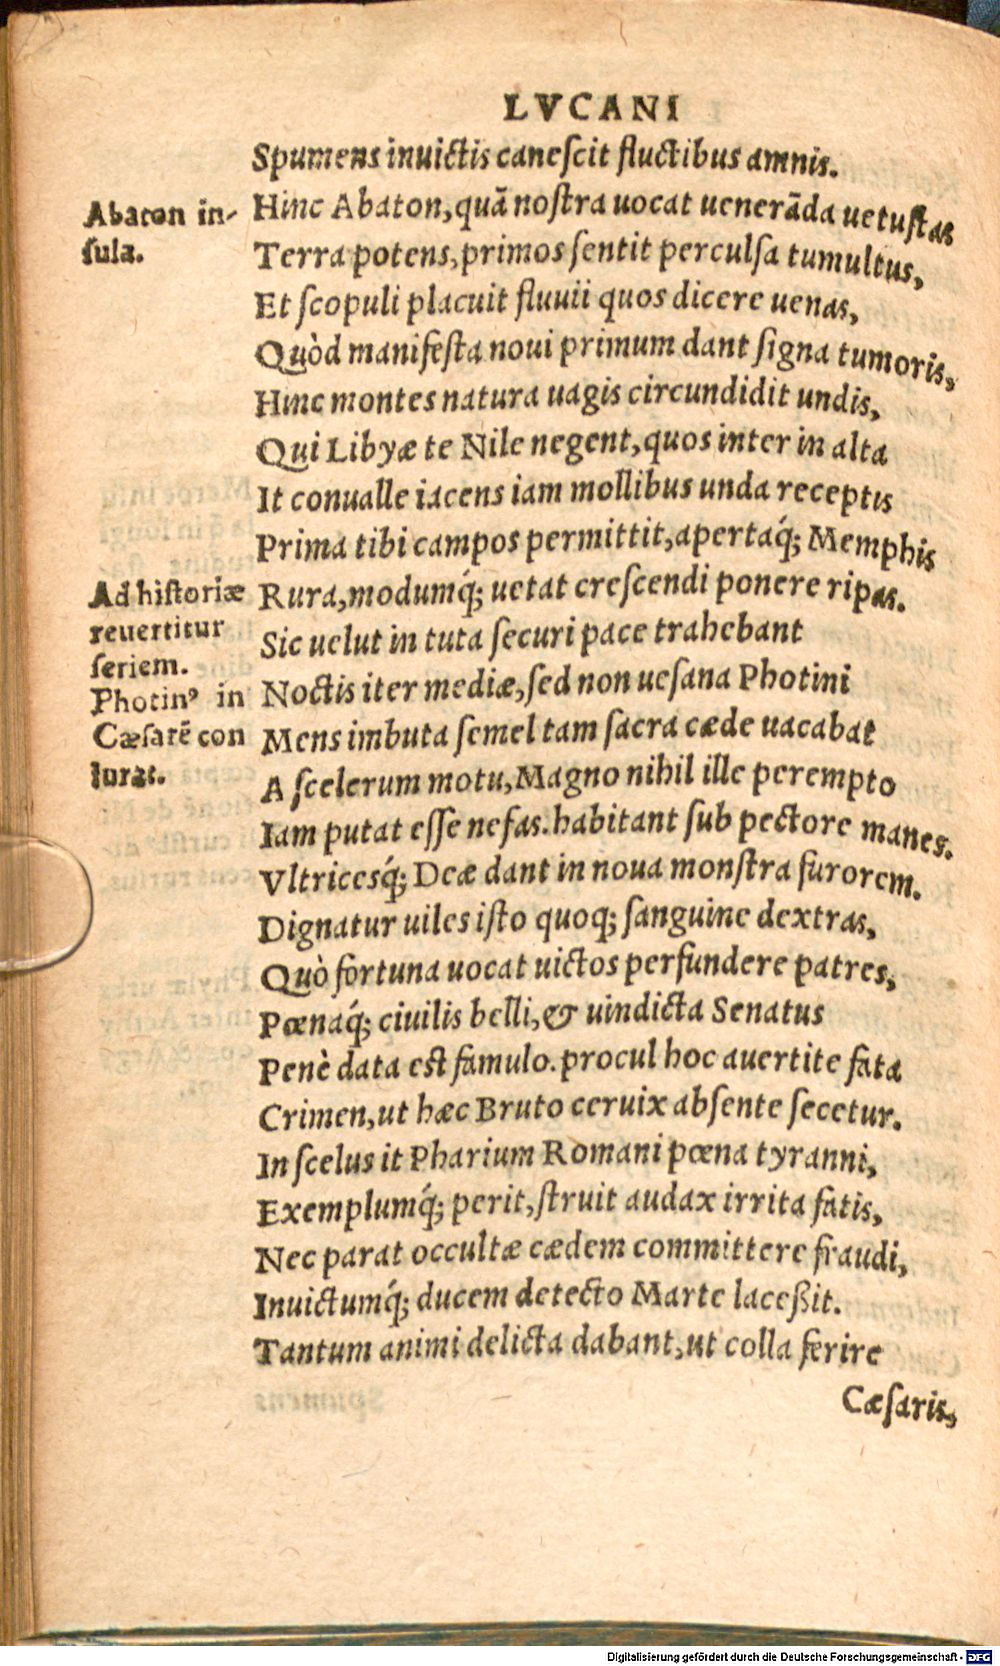 LVCANI
Spumens inuictis canescit fluctibus amnis.
Hinc Abaton, quā nostra uocat uenerāda uetustas
Terra potens, primos sentit perculsa tumultus,
Et scopuli placuit fluuii quos dicere uenas,
Quòd manifesta noui primum dant signa tumoris,
Hinc montes natura uagis circundidit undis,
Qui Libyæ te Nile negent, quos inter in alta
It conualle iacens iam mollibus unda receptis
Prima tibi campos permittit, apertaq́; Memphis
Rura, modumq́; uetat crescendi ponere ripas.
Sic uelut in tuta securi pace trahebant
Noctis iter mediæ, sed non uesana Photini
Mens imbuta semel tam sacra cæde uacabat
A scelerum motu, Magno nihil ille perempto
Iam putat esse nefas. habitant sub pectore manes.
Vltricesq́; Deæ dant in noua monstra furorem.
Dignatur uiles isto quoq; sanguine dextras,
Quò fortuna uocat uictos perfundere patres,
Pœnaq́; ciuilis belli, & uindicta Senatus
Penè data est famulo. procul hoc auertite fata
Crimen, ut hæc Bruto ceruix absente secetur.
In scelus it Pharium Romani pœna tyranni,
Exemplumq́; perit, struit audax irrita fatis,
Nec parat occultæ cædem committere fraudi,
Inuictumq́; ducem detecto Marte laceßit.
Tantum animi delicta dabant, ut colla ferire
Cæsaris,
Abaton in-
sula.
Ad historiæ
reuertitur
seriem.
Photinꝰ in
Cæsarē con
iurat.
Digitalisierung gefördert durch die Deutsche Forschungsgemeinschaft - DFG